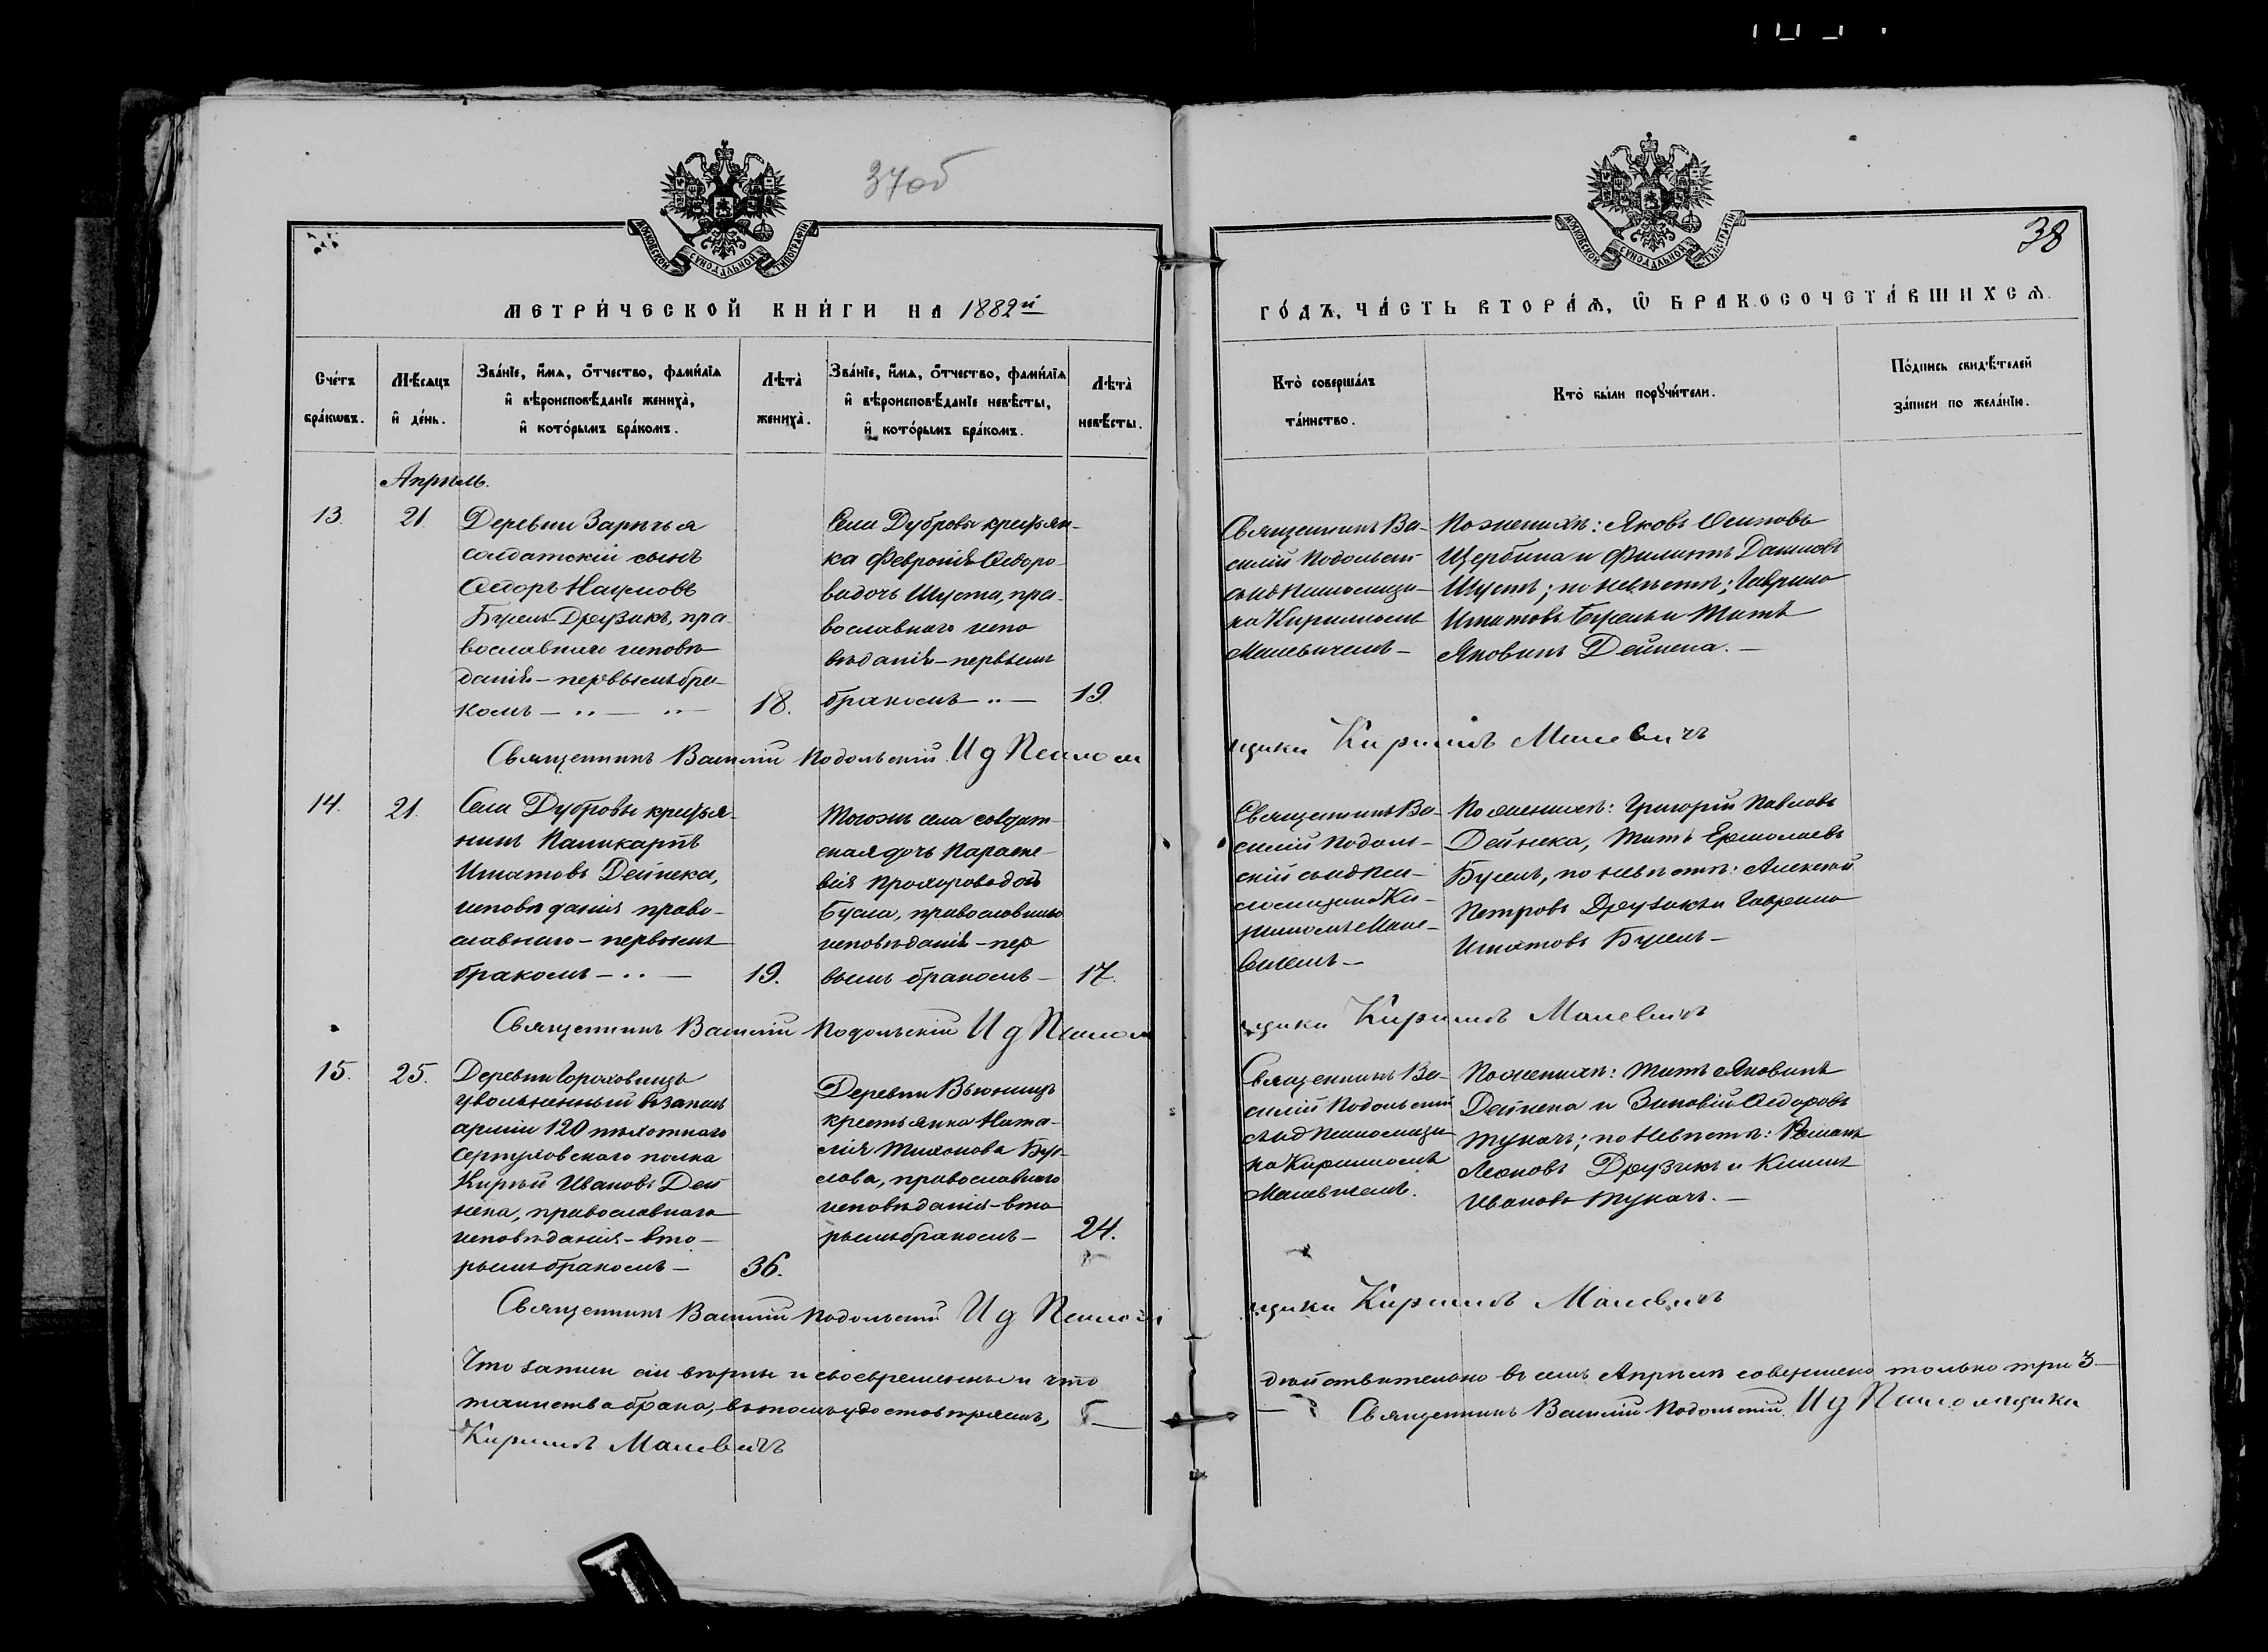 37об
МОСКОВСКОЙ СѴНОДАЛЬНОЙ ТИПОГРАФІИ
МЕТРИ́ЧЕСКОЙ КНИ́ГИ НА 1882й
Сче́тъ бра́кωвъ.
Мѣ́сяцъ и҆ де́нь.
Зва́нїе, и҆́мѧ, ѻ҆́тчество, фами́лїѧ
и҆ вѣроисповѣ́данїе жениха̀,
и҆ кото́рымъ бра́комъ.
Лѣта̀ жениха̀.
Зва́нїе, и҆́мѧ, ѻ҆́тчество, фами́лїѧ
и҆ вѣроисповѣ́данїе невѣ́сты,
и҆ кото́рымъ бра́комъ.
Лѣта̀ невѣ́сты.
Апрѣль.
13.
21.
Деревни Зарѣчья
солдатскій сынъ
Ѳеодоръ Наумовъ
Друзикъ, пра-
вославнаго исповѣ-
данія – первымъ бра-
комъ – „ – „ –
18.
Села Дубровы крестьян-
ка Февронія Ѳеодоро-
ва дочь Шуста, пра-
вославнаго испо
вѣданія – первымъ
бракомъ – „ –
19.
Священникъ Василій Подольскій И д Псалом
14.
21.
Села Дубровы крестья-
нинъ Паликарпъ
Игнатовъ Дейнека,
исповѣданія право-
славнаго – первымъ
бракомъ – „ –
19.
Тогожъ села солдат-
ская дочь Параске-
вія Прохорова
Бусла, православнаго
исповѣданія – пер
вымъ бракомъ –
17.
Священникъ Василій Подольскій И д Псалом
15.
25.
Деревни Гороховищъ
уволенный въ запасъ
арміи 120 пѣхотнаго
Серпуховскаго полка
Кирѣй Ивановъ Дей
нека, православнаго
исповѣданія – вто-
рымъ бракомъ –
36.
Деревни Вьюнищъ
крестьянка Ната-
лія Тихонова Бус-
лова, православнаго
исповѣданія – вто
рымъ бракомъ –
24.
Священникъ Василій Подольскій И д Псалом
Что записи сіи вѣрны и своевременны и что
таинства брака, въ томъ удостовѣряемъ,
Кириллъ Малевичъ
38
МОСКОВСКОЙ СѴНОДАЛЬНОЙ ТИПОГРАФІИ
ГО́ДЪ, ЧА́СТЬ ВТОРА́Ѧ, Ѽ БРАКОСОЧЕТА́ВШИХСѦ.
Кто̀ соверша́лъ та́инство.
Кто̀ бы́ли порꙋчи́тели.
По́дпись свидѣ́телей за́писи по жела́нїю.
Священникъ Ва-
силій Подольскій
съ и д псаломщи-
ка Кирилломъ
Малевичемъ –
По женихѣ: Яковъ Осиповъ
Щербина и Филиппъ Даниловъ
Шустъ; по невѣстѣ: Гаврило
Игнатовъ Буселъ и Титъ
Яковинъ Дейнека. –
щика Кириллъ Малевичъ
Священникъ Ва-
силій Подоль-
скій съ и д пса-
ломщика Ки-
рилломъ Мале-
вичемъ –
По женихѣ: Григорій Павловъ
Дейнека, Титъ Ермолаевъ
Буселъ, по невѣстѣ: Алексѣй
Петровъ Друзикъ и Гаврило
Игнатовъ Буселъ –
щика Кириллъ Малевичъ
Священникъ Ва-
силій Подольскій
съ и д псаломщи
ка Кирилломъ
Малевичемъ.
По женихѣ: Титъ Яковинъ
Дейнека и Зиновій Ѳеодоровъ
Тукачъ; по невѣстѣ: Романъ
Леоновъ Друзикъ и Климъ
Ивановъ Тукачъ. –
щика Кириллъ Малевичъ
дѣйствительно въ семъ Апрѣлѣ совершено только три 3
Священникъ Василій Подольскій. И д Псаломщика